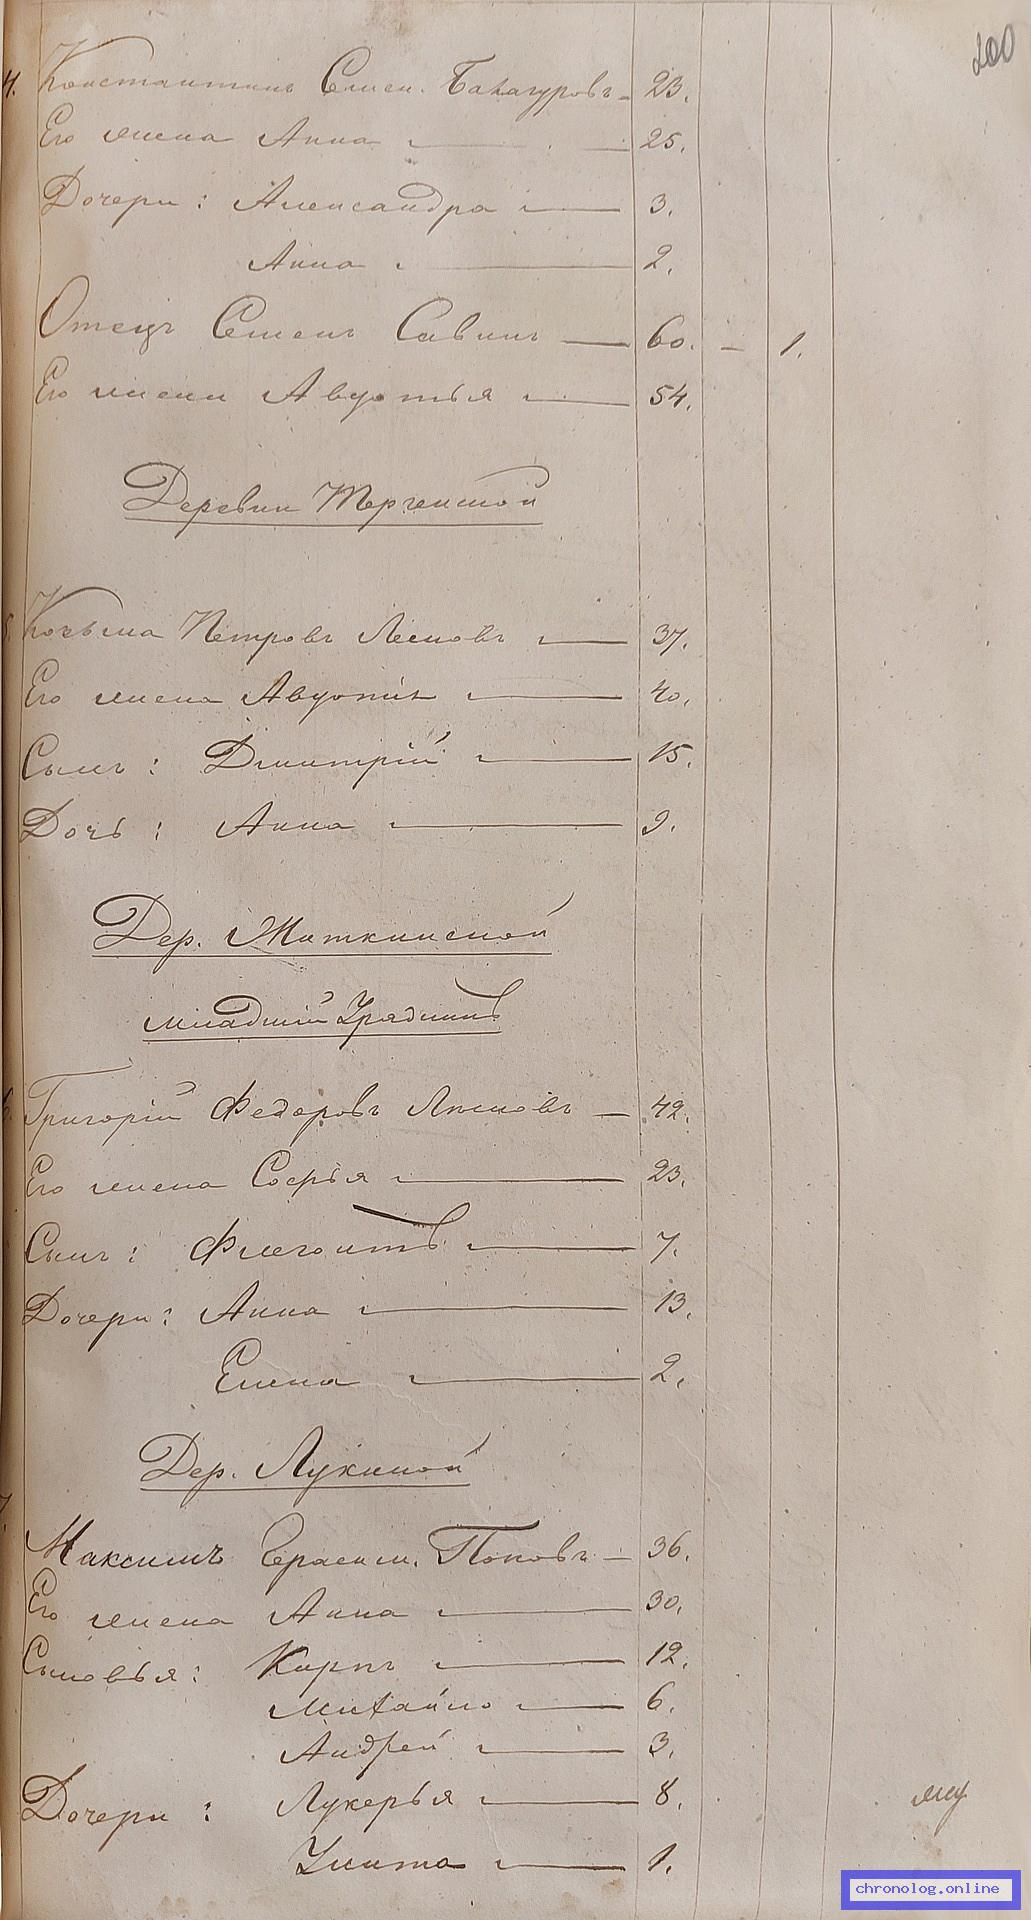 200
4. Константинъ Семен. Бакагуровъ — 23.
Его жена Анна — 25.
Дочери: Александра — 3.
Анна — 2.
Отецъ Семенъ Савинъ — 60. — 1.
Его жена Авдотья — 54.
Деревни
Козьма Петровъ Лесковъ — 37.
Его жена Авдотія — 40.
Сынъ: Дмитрій — 15.
Дочь: Анна — 9.
Дер. Житкинской
младшій Урядникъ
Григорій Федоровъ — 42.
Его жена Софья — 23.
Сынъ: Флегонтъ — 7.
Дочери: Анна — 13.
Елена — 2.
Дер. Лукиной
Максимъ Герасим. Поповъ — 36.
Его жена Анна — 30.
Сыновья: Карпъ — 12.
Михайло — 6.
Андрей — 3.
Дочери: Лукерья — 8.
Улита — 1.
chronolog.online